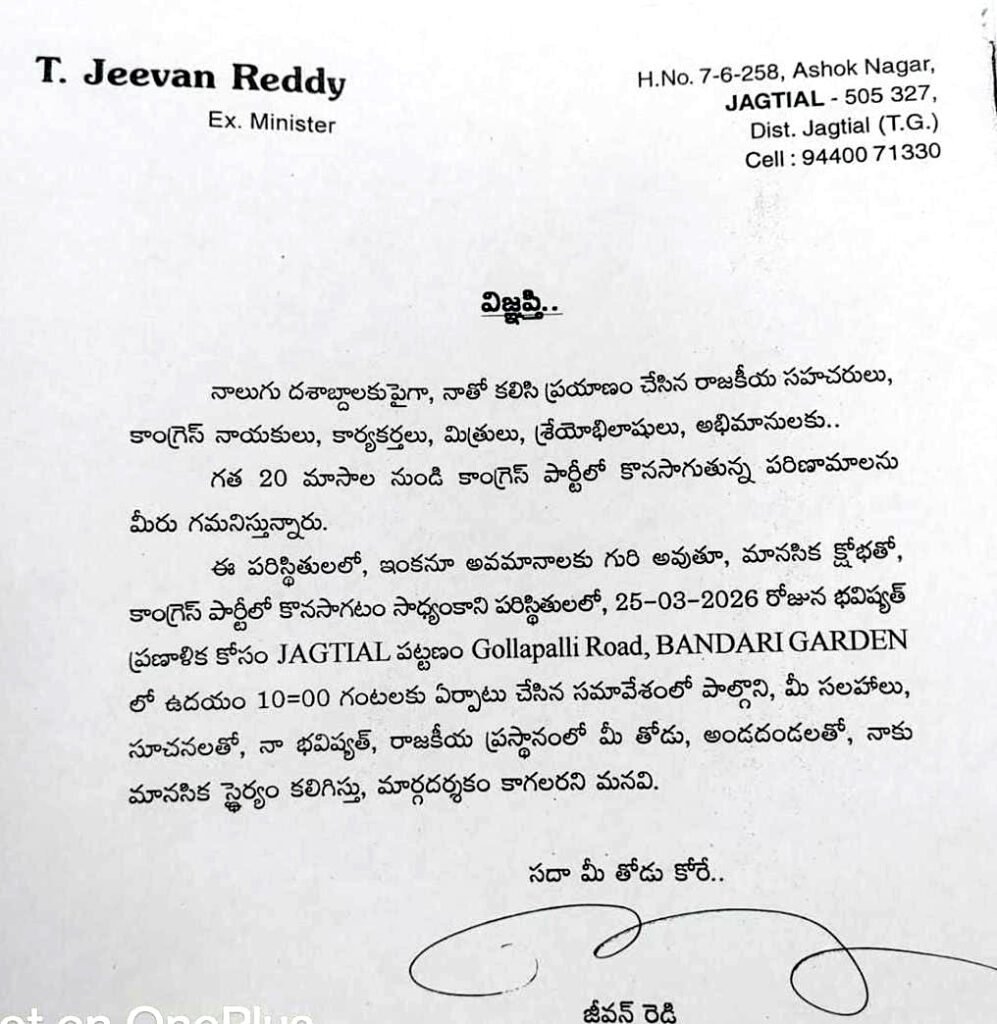 T. Jeevan Reddy
Ex. Minister
H.No. 7-6-258, Ashok Nagar,
JAGTIAL - 505 327,
Dist. Jagtial (T.G.)
Cell : 94400 71330
విజ్ఞప్తి..
నాలుగు దశాబ్దాలకుపైగా, నాతో కలిసి ప్రయాణం చేసిన రాజకీయ సహచరులు,
కాంగ్రెస్ నాయకులు, కార్యకర్తలు, మిత్రులు, శ్రేయోభిలాషులు, అభిమానులకు..
గత 20 మాసాల నుండి కాంగ్రెస్ పార్టీలో కొనసాగుతున్న పరిణామాలను
మీరు గమనిస్తున్నారు.
ఈ పరిస్థితులలో, ఇంకనూ అవమానాలకు గురి అవుతూ, మానసిక క్షోభతో,
కాంగ్రెస్ పార్టీలో కొనసాగటం సాధ్యంకాని పరిస్థితులలో, 25-03-2026 రోజున భవిష్యత్
ప్రణాళిక కోసం JAGTIAL పట్టణం Gollapalli Road, BANDARI GARDEN
లో ఉదయం 10=00 గంటలకు ఏర్పాటు చేసిన సమావేశంలో పాల్గొని, మీ సలహాలు,
సూచనలతో, నా భవిష్యత్, రాజకీయ ప్రస్థానంలో మీ తోడు, అండదండలతో, నాకు
మానసిక స్థైర్యం కలిగిస్తు, మార్గదర్శకం కాగలరని మనవి.
సదా మీ తోడు కోరే..
జీవన్ రెడ్డి
on OnePlus